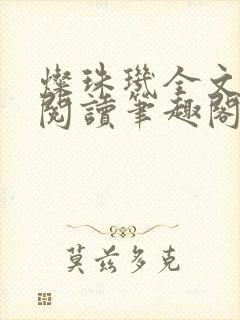 燦珠璣全文
閱讀筆趣閣
莫茲多克